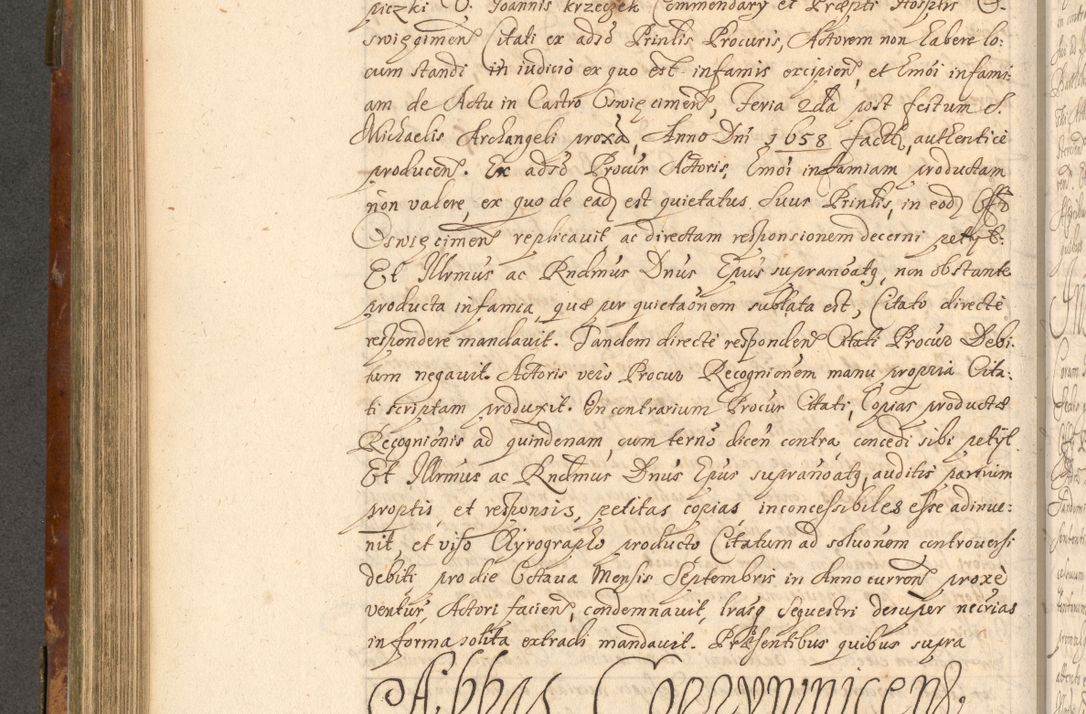 piczki V. Joannis Krzeczek Commendary et Præpti Hosptis O:
swięcimen̄ Citati ex adso Prinlis Procuris, Actorem non habere lo:
cum standi, in iudicio ex quo est infamis excipien̄, et Emoi infami:
am de Actu in Castro Oswięcimen̄, Feria 2da post festum S.
Michaelis Archangeli proxa, Anno Dni 1658 factū, authentice
producen̄. Ex adso Procur Actoris, Emoi infamiam productam
non valere, ex quo de ead est quietatus suus Prinlis, in eod Offo
Oswięcimen̄ replicavit, ac directam responsionem decerni petyt.
Et Illrmus ac Rndmus Dnus Epus supranoatq, non obstante
producta infamia, quæ pr quietaonem sublata est, Citato directe
respondere mandavit. Tandem directe responden̄ Citati Procur Debi:
tum negavit. Actoris vero Procur Recognionem manu propria Cita:
ti scriptam produxit. In contrarium Procur Citati, Copias productæ
Recognionis ad quindenam cum terno dicen̄ contra concedi sibi petyt.
Et Illrmus ac Rndmus Dnus Epus supranoatq, auditis partium
proptis et responsis, petitas copias inconcessibiles esse adinue:
nit, et viso Chyrographo producto Citatum ad soluonem controuersi
debiti pro die Octava Mensis Septembris in Anno curren̄ proxe
ventur, Actori facien̄, condemnavit, lrasq sequestri desuper necrias
in forma solita extradi mandavit. Præsentibus quibus supra
Abbas Coprzywnicen̄